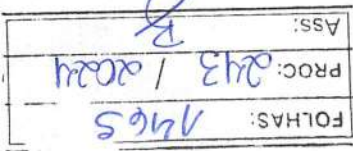 FOLHAS: 1465
PROC: 243 / 2024
ASS: